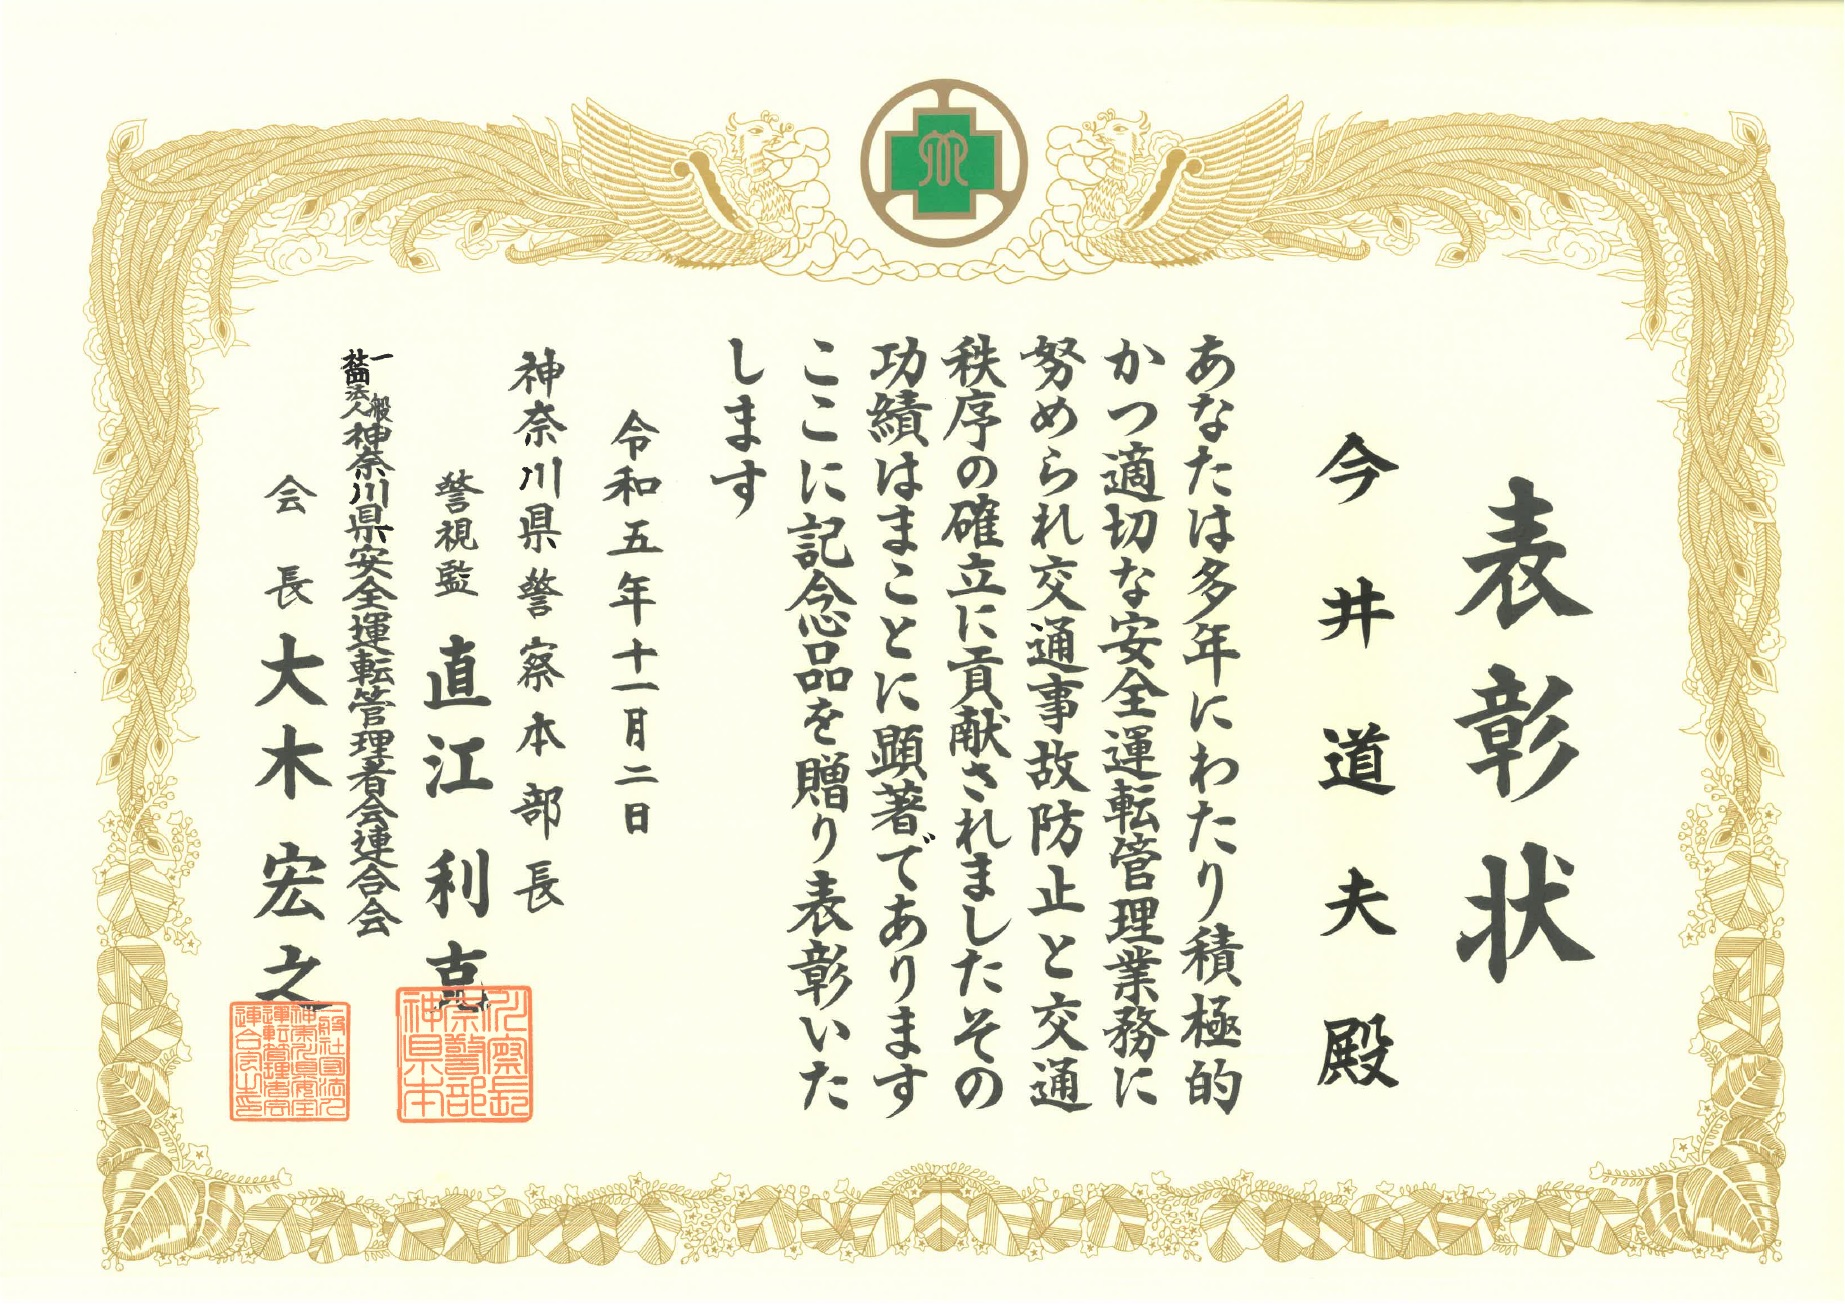 表彰状
今井道夫殿
あなたは多年にわたり積極的
かつ適切な安全運転管理業務に
努められ交通事故防止と交通
秩序の確立に貢献されましたその
功績はまことに顕著であります
ここに記念品を贈り表彰いた
します
令和五年十一月二日
神奈川県警察本部長
警視監 直江利克
一般社団法人神奈川県安全運転管理者会連合会
会長 大木宏之
神奈川県警察本部長
一般社団法人神奈川県安全運転管理者会連合会之印